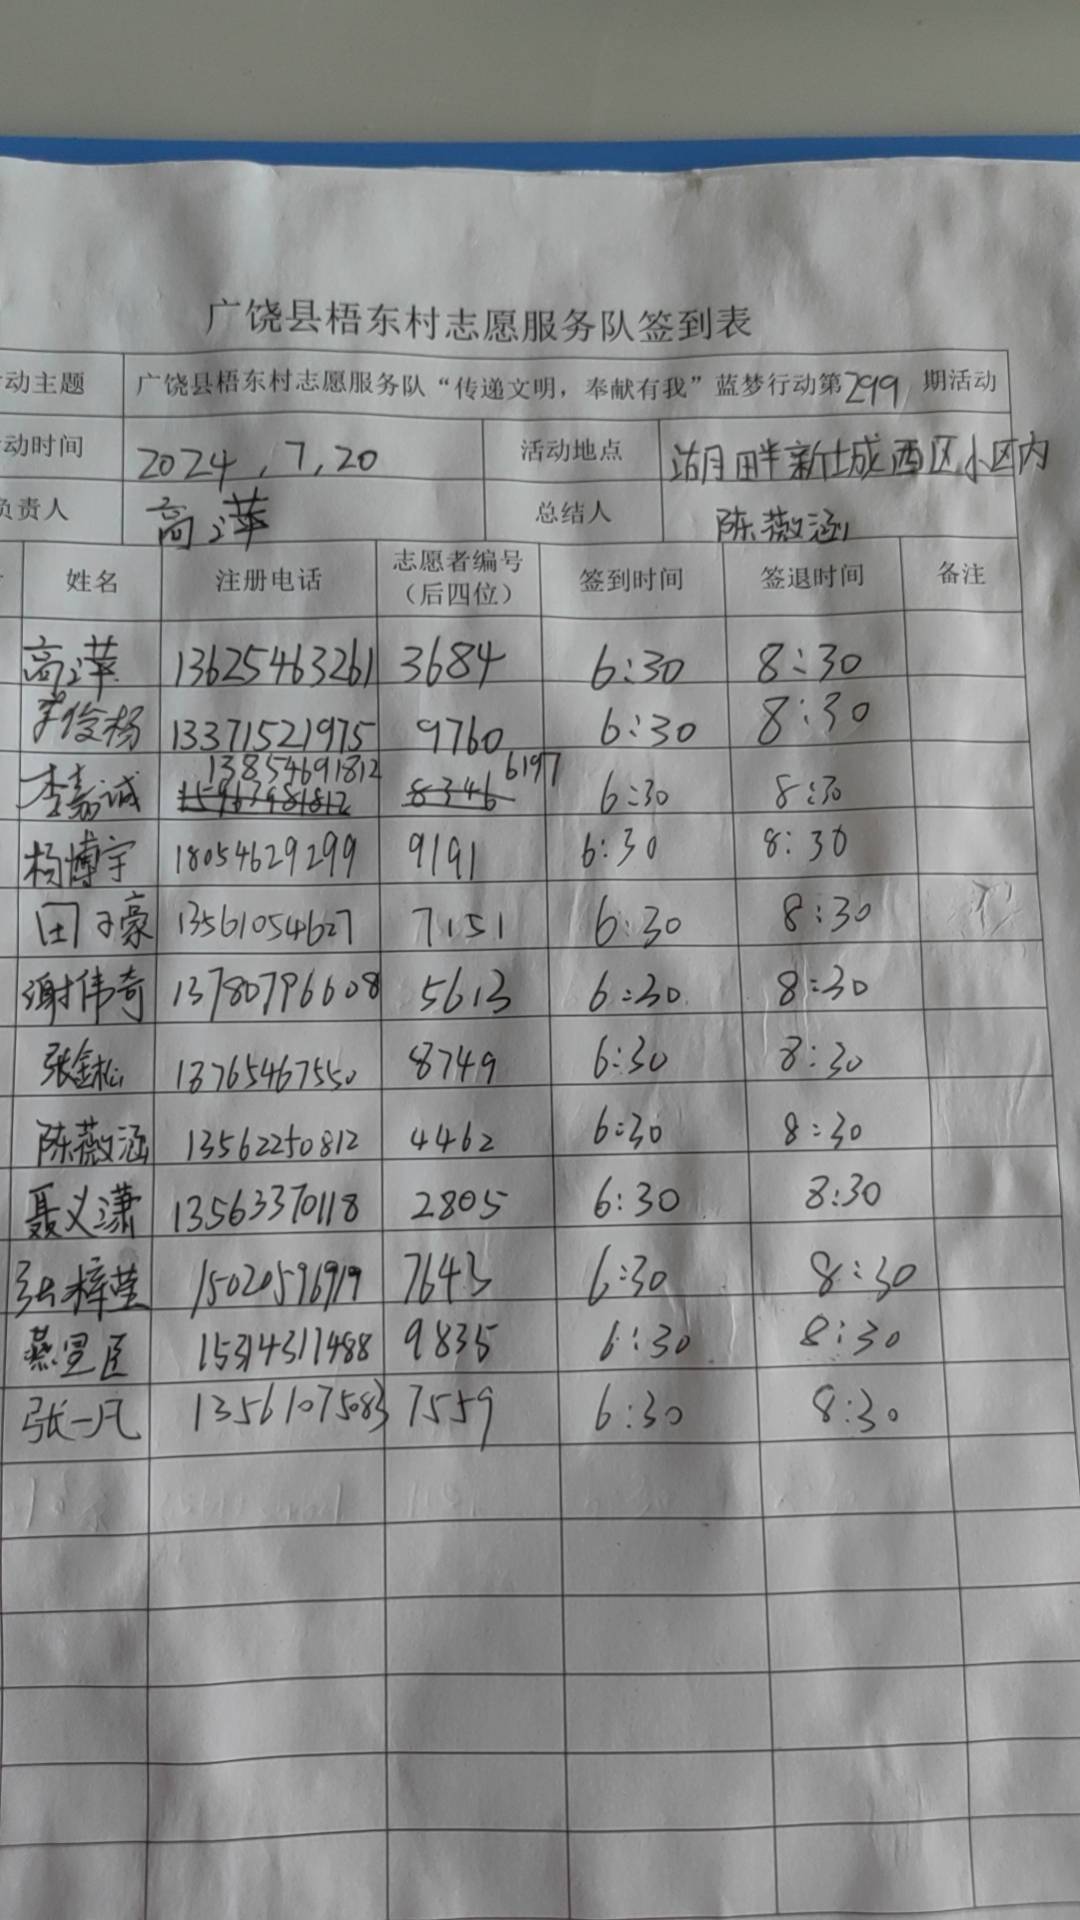 广饶县梧东村志愿服务队签到表
动主题 广饶县梧东村志愿服务队“传递文明，奉献有我”蓝梦行动第299期活动
动时间 2024，7，20 活动地点 湖畔新城西区小区内
负责人 高洁萍 总结人 陈薇涵
姓名 注册电话 志愿者编号（后四位） 签到时间 签退时间 备注
13625463261 3684 6:30 8:30
李俊杨 13371521975 9760 6:30 8:30
李嘉诚 13854691812 6197 6:30 8:30
杨博宇 18054629299 9191 6:30 8:30
田子豪 13561054627 7151 6:30 8:30
谢伟奇 13780796608 5613 6:30 8:30
张金松 13765467550 8749 6:30 8:30
陈薇涵 13562250812 4462 6:30 8:30
聂义潇 13563370118 2805 6:30 8:30
张梓莹 15020596919 7643 6:30 8:30
燕昱臣 15314311488 9835 6:30 8:30
张一凡 13561075083 7559 6:30 8:30